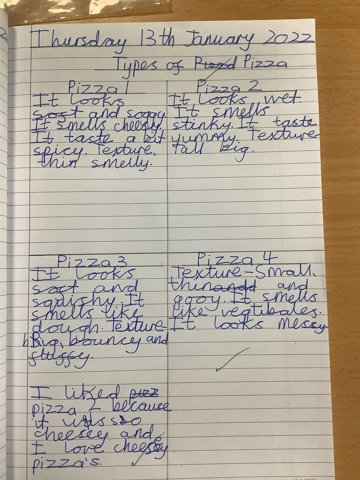 Thursday 13th January 2022
Types of Pizza
Pizza 1
It looks
soft and soggy
It smells cheesy.
It taste a bit
spicy. Texture.
thin smelly.
Pizza 2
It looks wet.
It smells
stinky. It taste
yummy. Texture
tall big.
Pizza 3
It looks
soft and
squishy. It
smells like
dough. Texture-
Big, bouncy and
fluffy.
Pizza 4
Texture-Small.
thin and
gooy. It smells
like vegtibales.
It looks messy
I liked
pizza 2 because
it was so
cheesey and
I love cheesey
pizza's.